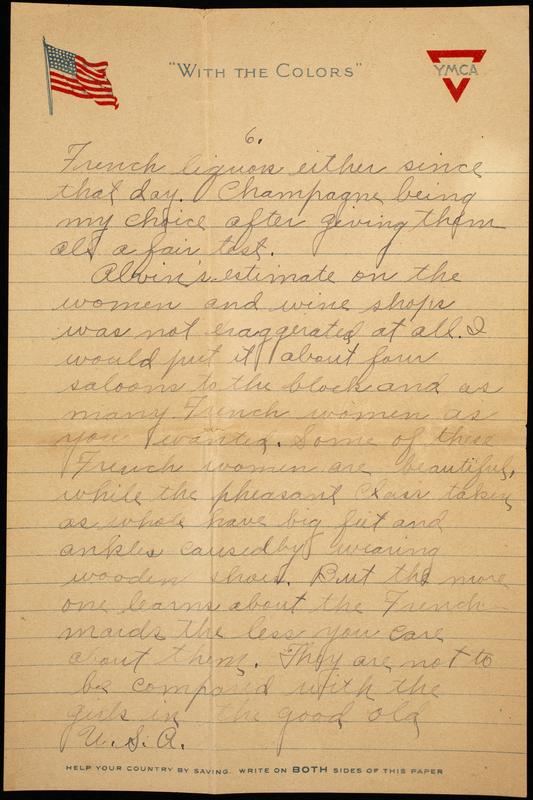 "WITH THE COLORS"
YMCA
6.
French liquors either since
that day. Champagne being
my choice after giving them
all a fair test.
Alvin's estimate on the
women and wine shops
was not exaggerated at all. I
would put it about four
saloons to the block and as
many French women as
you wanted. Some of these
French women are beautiful,
while the pheasant class taken
as whole have big feet and
ankles caused by wearing
wooden shoes. But the more
one learns about the French
maids the less you care
about them. They are not to
be compared with the
girls in the good old
U.S.A.
HELP YOUR COUNTRY BY SAVING. WRITE ON BOTH SIDES OF THIS PAPER